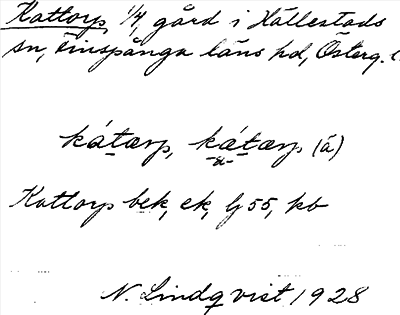 Kattorp 1/4, gård i Hällestads
sn, Finspånga läns hd, Österg.
kátarp, kátærp (á)
-a-
Kattorp bek, ek, lj 55, kb
N. Lindqvist 1928